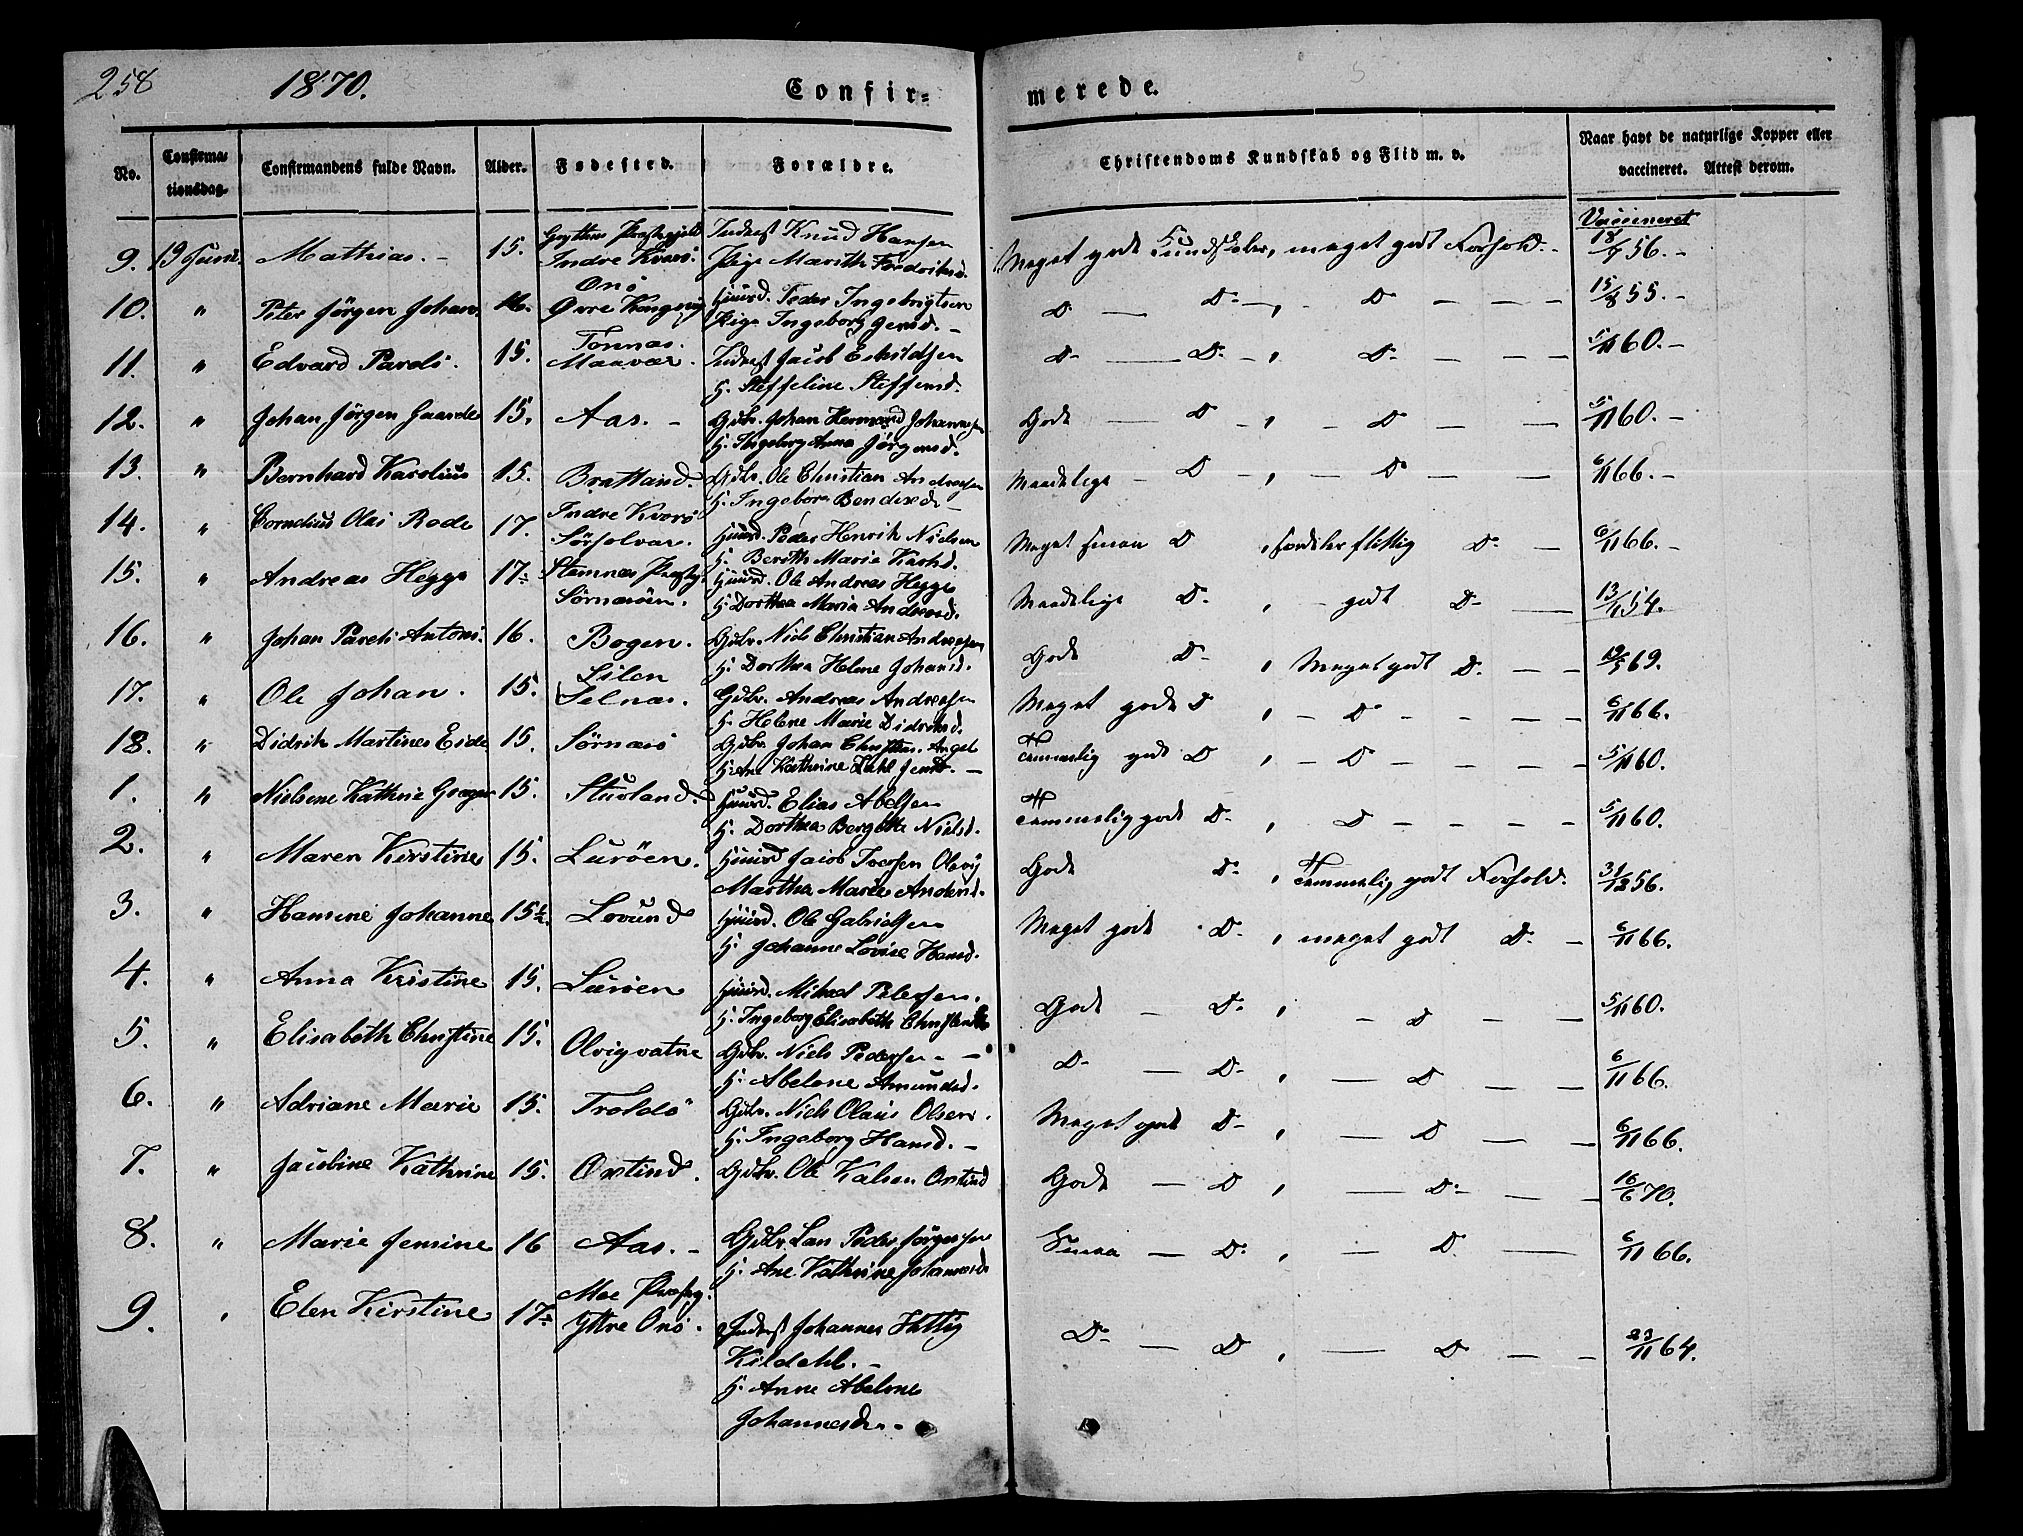 258
1870.
Confir-
merede.
No.
Confirma-
tionsdag.
Confirmandens fulde Navn.
Alder.
Fødested.
Forældre.
Christendoms Kundskab og Flid m. v.
Naar havt de naturlige Kopper eller
vaccineret. Attest derom.
Vaccineret
9. 19 Juni. Mathias. 15. Indre Kvarø. Inderst Knud Hansen
Pige Marith Fredriksd.
Meget gode Kundskaber, meget godt Forhold. 56.
10. " Peter Jørgen Johan 16. Onø Øvre Huusmd. Peder Ingebrigtsen
Pige Ingeborg Jensd.
D D , D 15/8 55.
11. " Edvard Parelö. 15. Tonnas. Maavær. Inderst Jacob Eskildsen
H. Steffeline Steffensd.
D D , D 5/11 60.
12. " Johan Jørgen Gaarder 15. Aas. Gdbr. Johan Hermand Johannesen
H. Ingeborg Anna Jørgensd.
Gode D , D 5/11 60.
13. " Bernhard Karolius 15. Bratland. Gdbr. Ole Christian Andreasen
H. Ingeborg
Maadelige D , D 6/11 66.
14. " Cornelius Olai Rode 17. Indre Kvarø Sørsolvær. Huusmd. Peder Henrik Nielsen
H. Berith Marie
Meget smaa D , flittig D 6/11 66.
15. " Andreas Hegge 17. Stamnæs Præstgj. Sørnæsöen. Huusmd. Ole Andreas Hegge
H. Dorthea Maria Andersd.
Maadelige D , godt D 54.
16. " Johan Pareli Antoni. 16. Bogen. Gdbr. Niels Christian Andreasen
H. Dorthea Helene Johansd.
Gode D , Meget godt D 69.
17. " Ole Johan. 15. Lilen Selnæs. Gdbr. Andreas Andreasen
H. Helene Marie Didriksd.
Meget gode D , D 6/11 66.
18. " Didrik Martines Eide 15. Sørnæsö Gdbr. Johan Angel
H. Ane Kathrine Dahl Jensd.
Temmelig gode D , D 5/11 60.
1. " Nielsene Kathrie 15. Stuvland. Huusmd. Elias Abelsen
H. Dorthea Bergitte Nielsd.
Temmelig gode D , D 5/11 60.
2. " Maren Kirstine 15. Luröen. Huusmd Jacob Iversen Olvig
Martha Marie Andersd.
Gode D , Temmelig godt Forhold. 31/12 56.
3. " Hansine Johanne 15½. Lovund Huusmd. Ole Gabrielsen
H. Johanne Lovise Hansd.
Meget gode D , meget godt D 6/11 66.
4. " Anna Kristine 15. Luröen Huusmd. Mikael Petersen.
H. Ingeborg Elisabeth
Gode D , D 5/11 60.
5. " Elisabeth Christine 15. Olvigvatne Gdbr. Niels Pedersen
H. Abelone Amundsd.
D D , D 6/11 66.
6. " Adriane Marie 15. Troldö Gdbr. Niels Olaus Olsen.
H. Ingeborg Hansd.
Meget gode D , D 6/11 66.
7. " Jacobine Kathrine 15. Oxtind. Gdbr. Ole Kalsen Oxtind
Gode D , D 16/6 70.
8. " Marie Jensine 16 Aas. Gdbr. Lars Peder Jørgensen
H. Ane Kathrine Johannesd.
Smaa D , D 6/11 66.
9. " Elen Kirstine 17. Moe Præstgj. Yttre Onö. Inderst Johannes Hvettig
Kildahl.
H. Anne Abelone
Johannesdr.
D D , D 23/11 64.